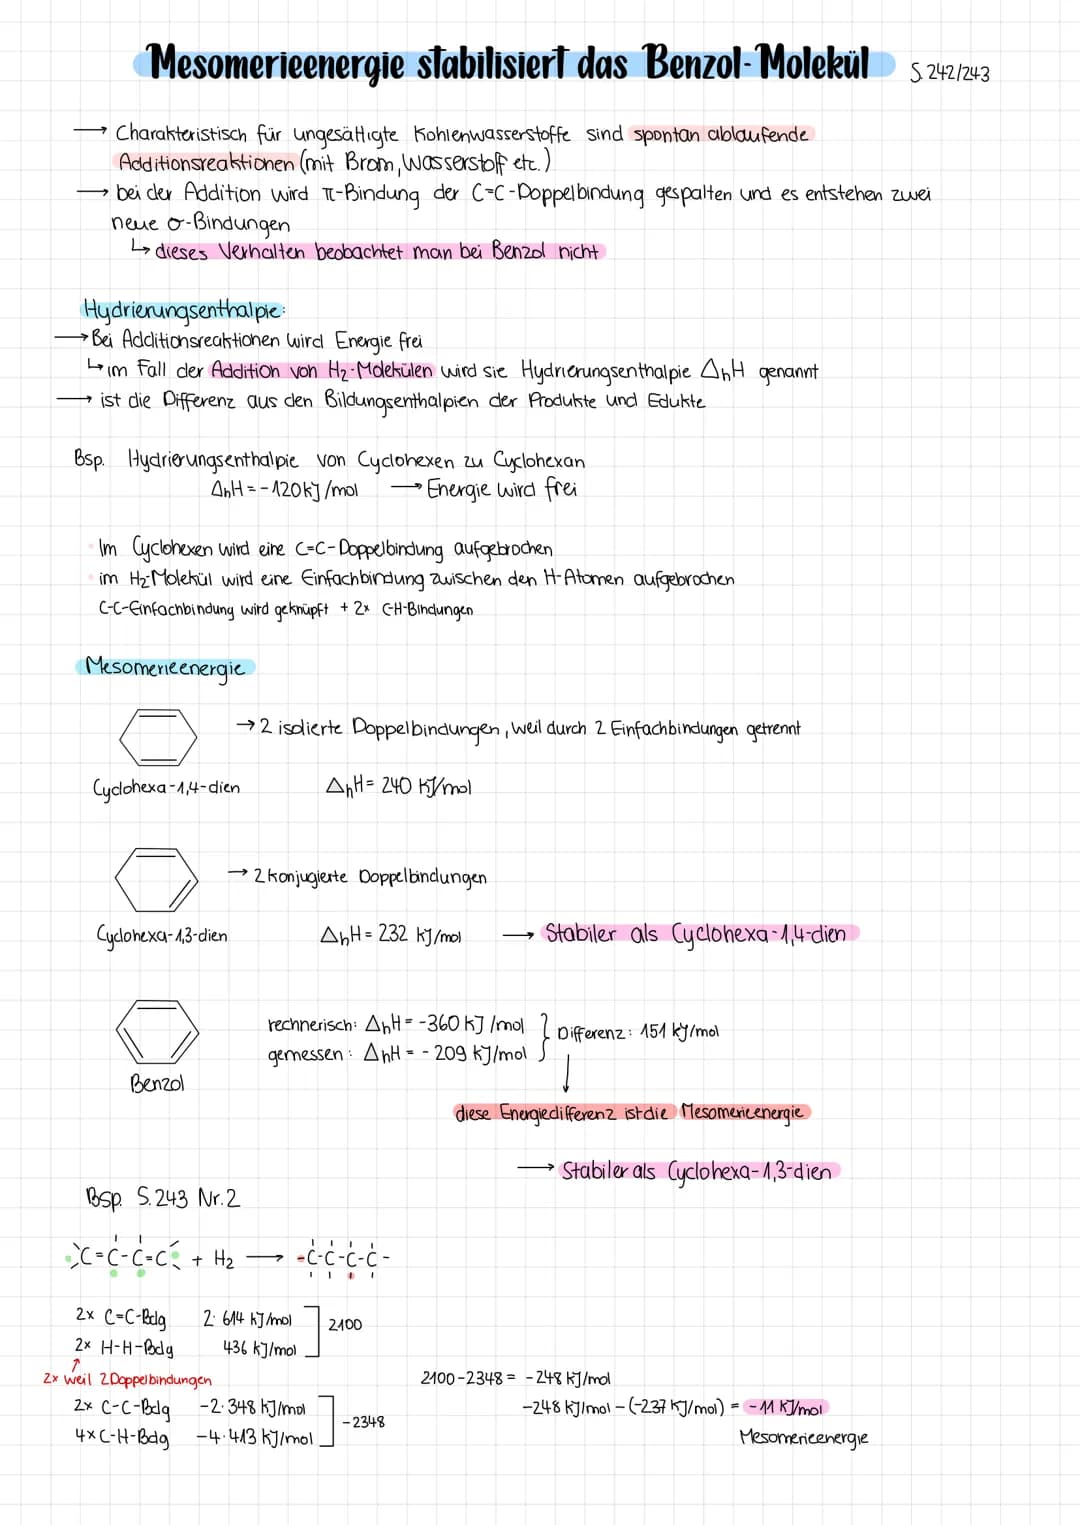 Mesomerieenergie stabilisiert das Benzol-Molekül S. 242/243
→ Charakteristisch für ungesättigte Kohlenwasserstoffe sind spontan ablaufende
Additionsreaktionen (mit Brom, Wasserstoff etc.)
→ bei der Addition wird π-Bindung der C=C-Doppelbindung gespalten und es entstehen zwei
neue σ-Bindungen
↳ dieses Verhalten beobachtet man bei Benzol nicht
Hydrierungsenthalpie:
→ Bei Additionsreaktionen wird Energie frei
↳ im Fall der Addition von H₂-Molekülen wird sie Hydrierungsenthalpie ΔhH genannt
→ ist die Differenz aus den Bildungsenthalpien der Produkte und Edukte
Bsp. Hydrierungsenthalpie von Cyclohexen zu Cyclohexan
ΔhH = -120 kJ/mol → Energie wird frei
• Im Cyclohexen wird eine C=C-Doppelbindung aufgebrochen
• im H₂-Molekül wird eine Einfachbindung zwischen den H-Atomen aufgebrochen
C-C-Einfachbindung wird geknüpft + 2x C-H-Bindungen
Mesomerieenergie
→ 2 isolierte Doppelbindungen, weil durch 2 Einfachbindungen getrennt
Cyclohexa-1,4-dien ΔhH = 240 KJ/mol
→ 2 konjugierte Doppelbindungen
Cyclohexa-1,3-dien ΔhH = 232 kJ/mol → Stabiler als Cyclohexa-1,4-dien
rechnerisch: ΔhH = -360 KJ/mol } Differenz: 151 kJ/mol
gemessen: ΔhH = -209 kJ/mol
Benzol
diese Energiedifferenz ist die Mesomerieenergie
→ Stabiler als Cyclohexa-1,3-dien
Bsp. S. 243 Nr. 2
C=C-C=C + H₂ → -C-C-C-C-
2x C=C-Bdg 2·614 kJ/mol ] 2100
2x H-H-Bdg 436 kJ/mol
↑
2x weil 2 Doppelbindungen 2100-2348 = -248 KJ/mol
2x C-C-Bdg -2·348 kJ/mol ] -2348 -248 KJ/mol - (-237 KJ/mol) = -11 KJ/mol
4x C-H-Bdg -4·413 kJ/mol Mesomerieenergie